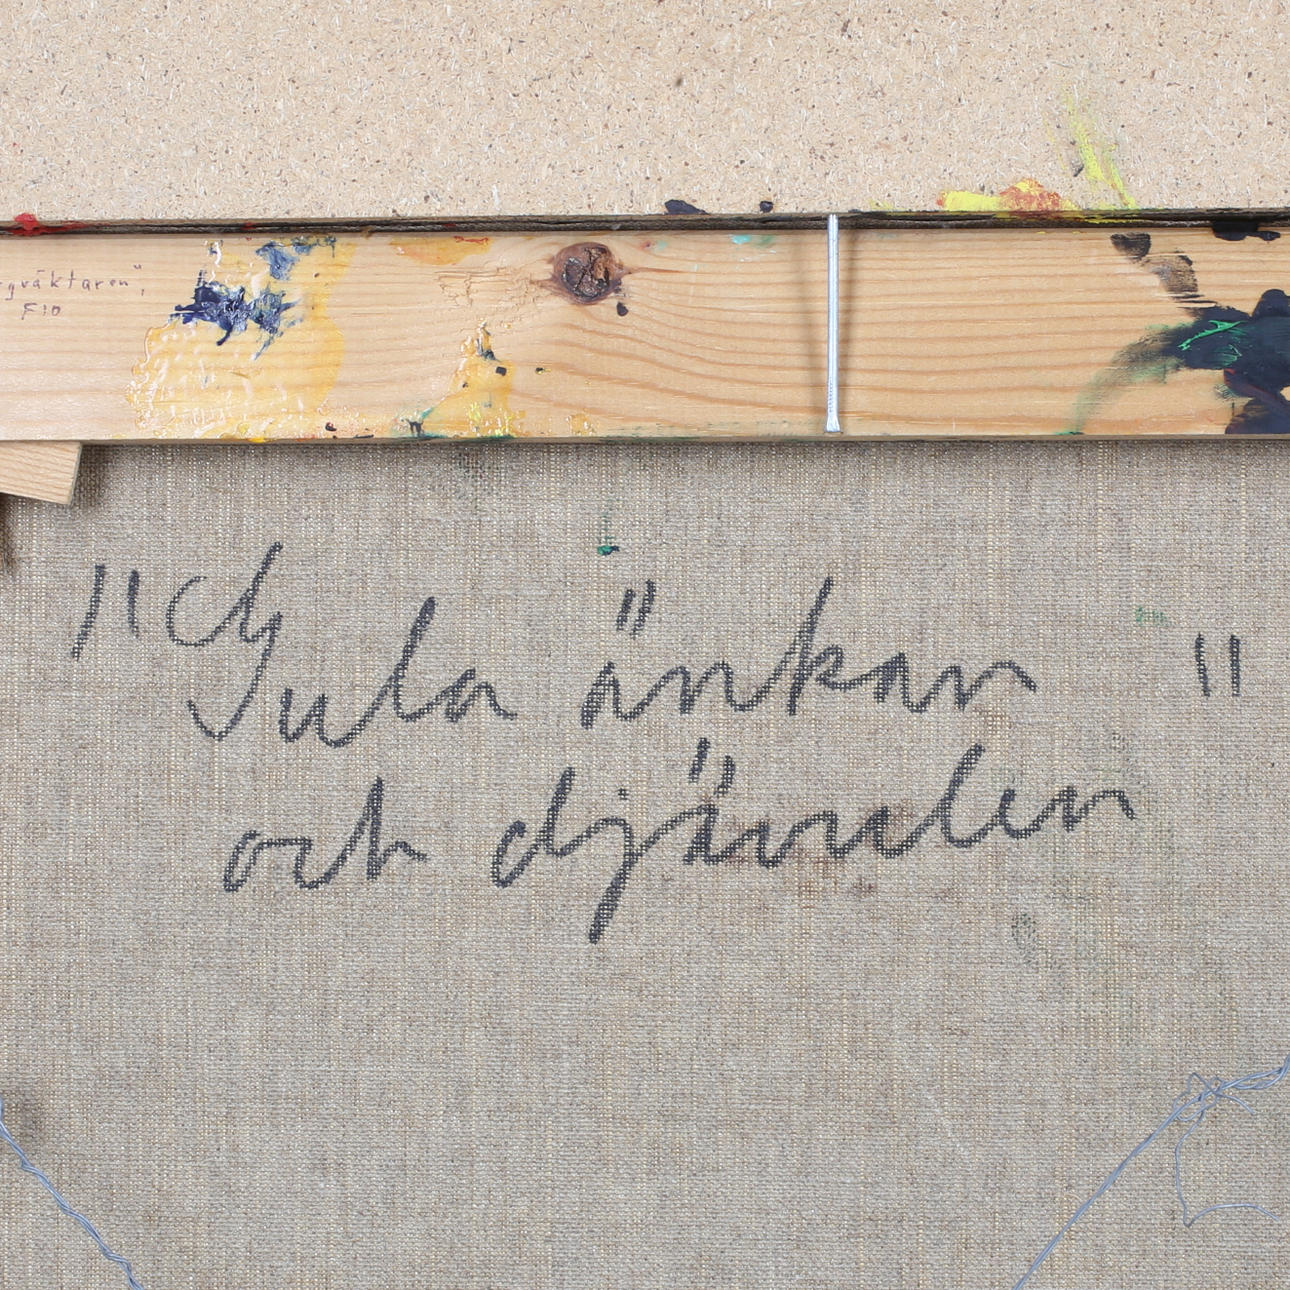 rgväktaren",
F10
"Gula änkan "
och djävulen